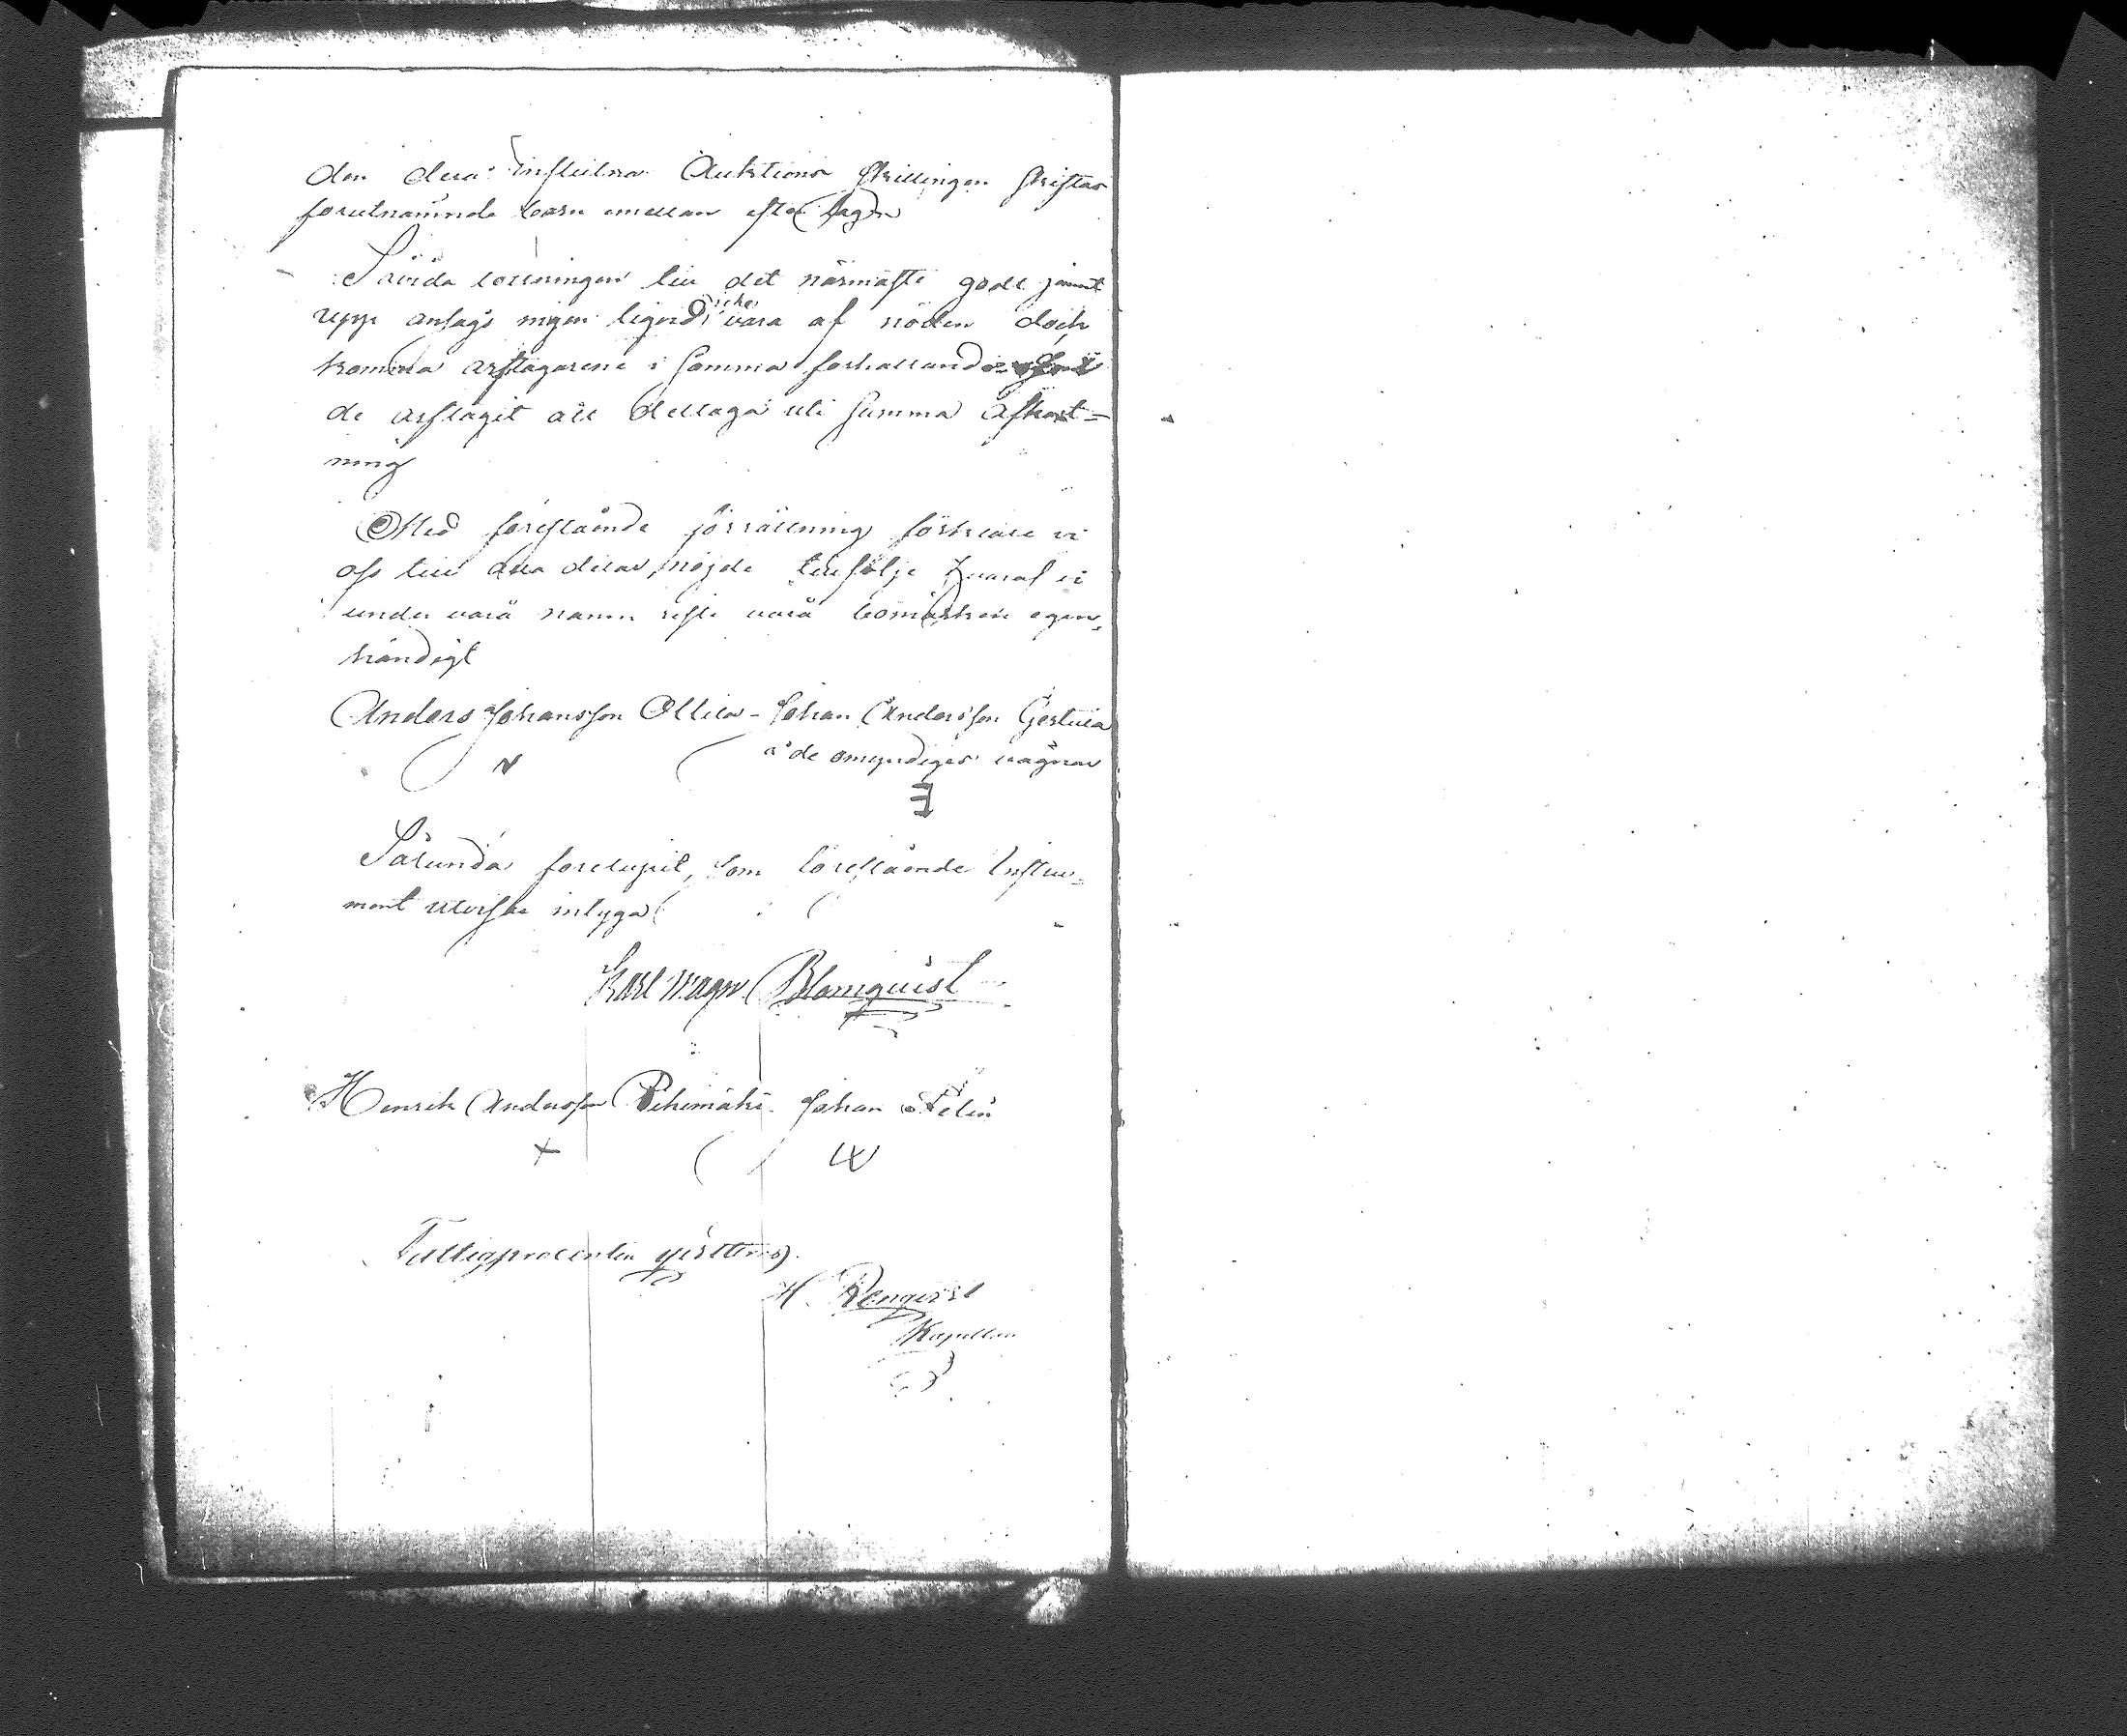 den dera influtna Auktions skillingen skiftas
forutnämnde barn emellan efter lagen
Såvida lottningen till det närmaste gått jämnt
upp ansågs ingen liqvid icke vara af nöden doch
komma arftagarene i samma förhållande som
de arftagit att deltaga uti samma afkort-
ning
Med förestående förrättning förklare vi
oss till alla delar nöjde tillfölje hvaraf vi
under våra namn rista våra bomärken egen-
händigt
Anders Johansson Ollila - Johan Andersson Gertula
å de omyndiges vägnar
N
E
Sålunda forelupit, som förestående Instru-
ment utvisar intyga
Karl Magn. Blomquist
Henrik Andersson Pehimäki Johan Felin
+
W
Fattigprocenten qvitteras.
H. Renqvist
Kapellan